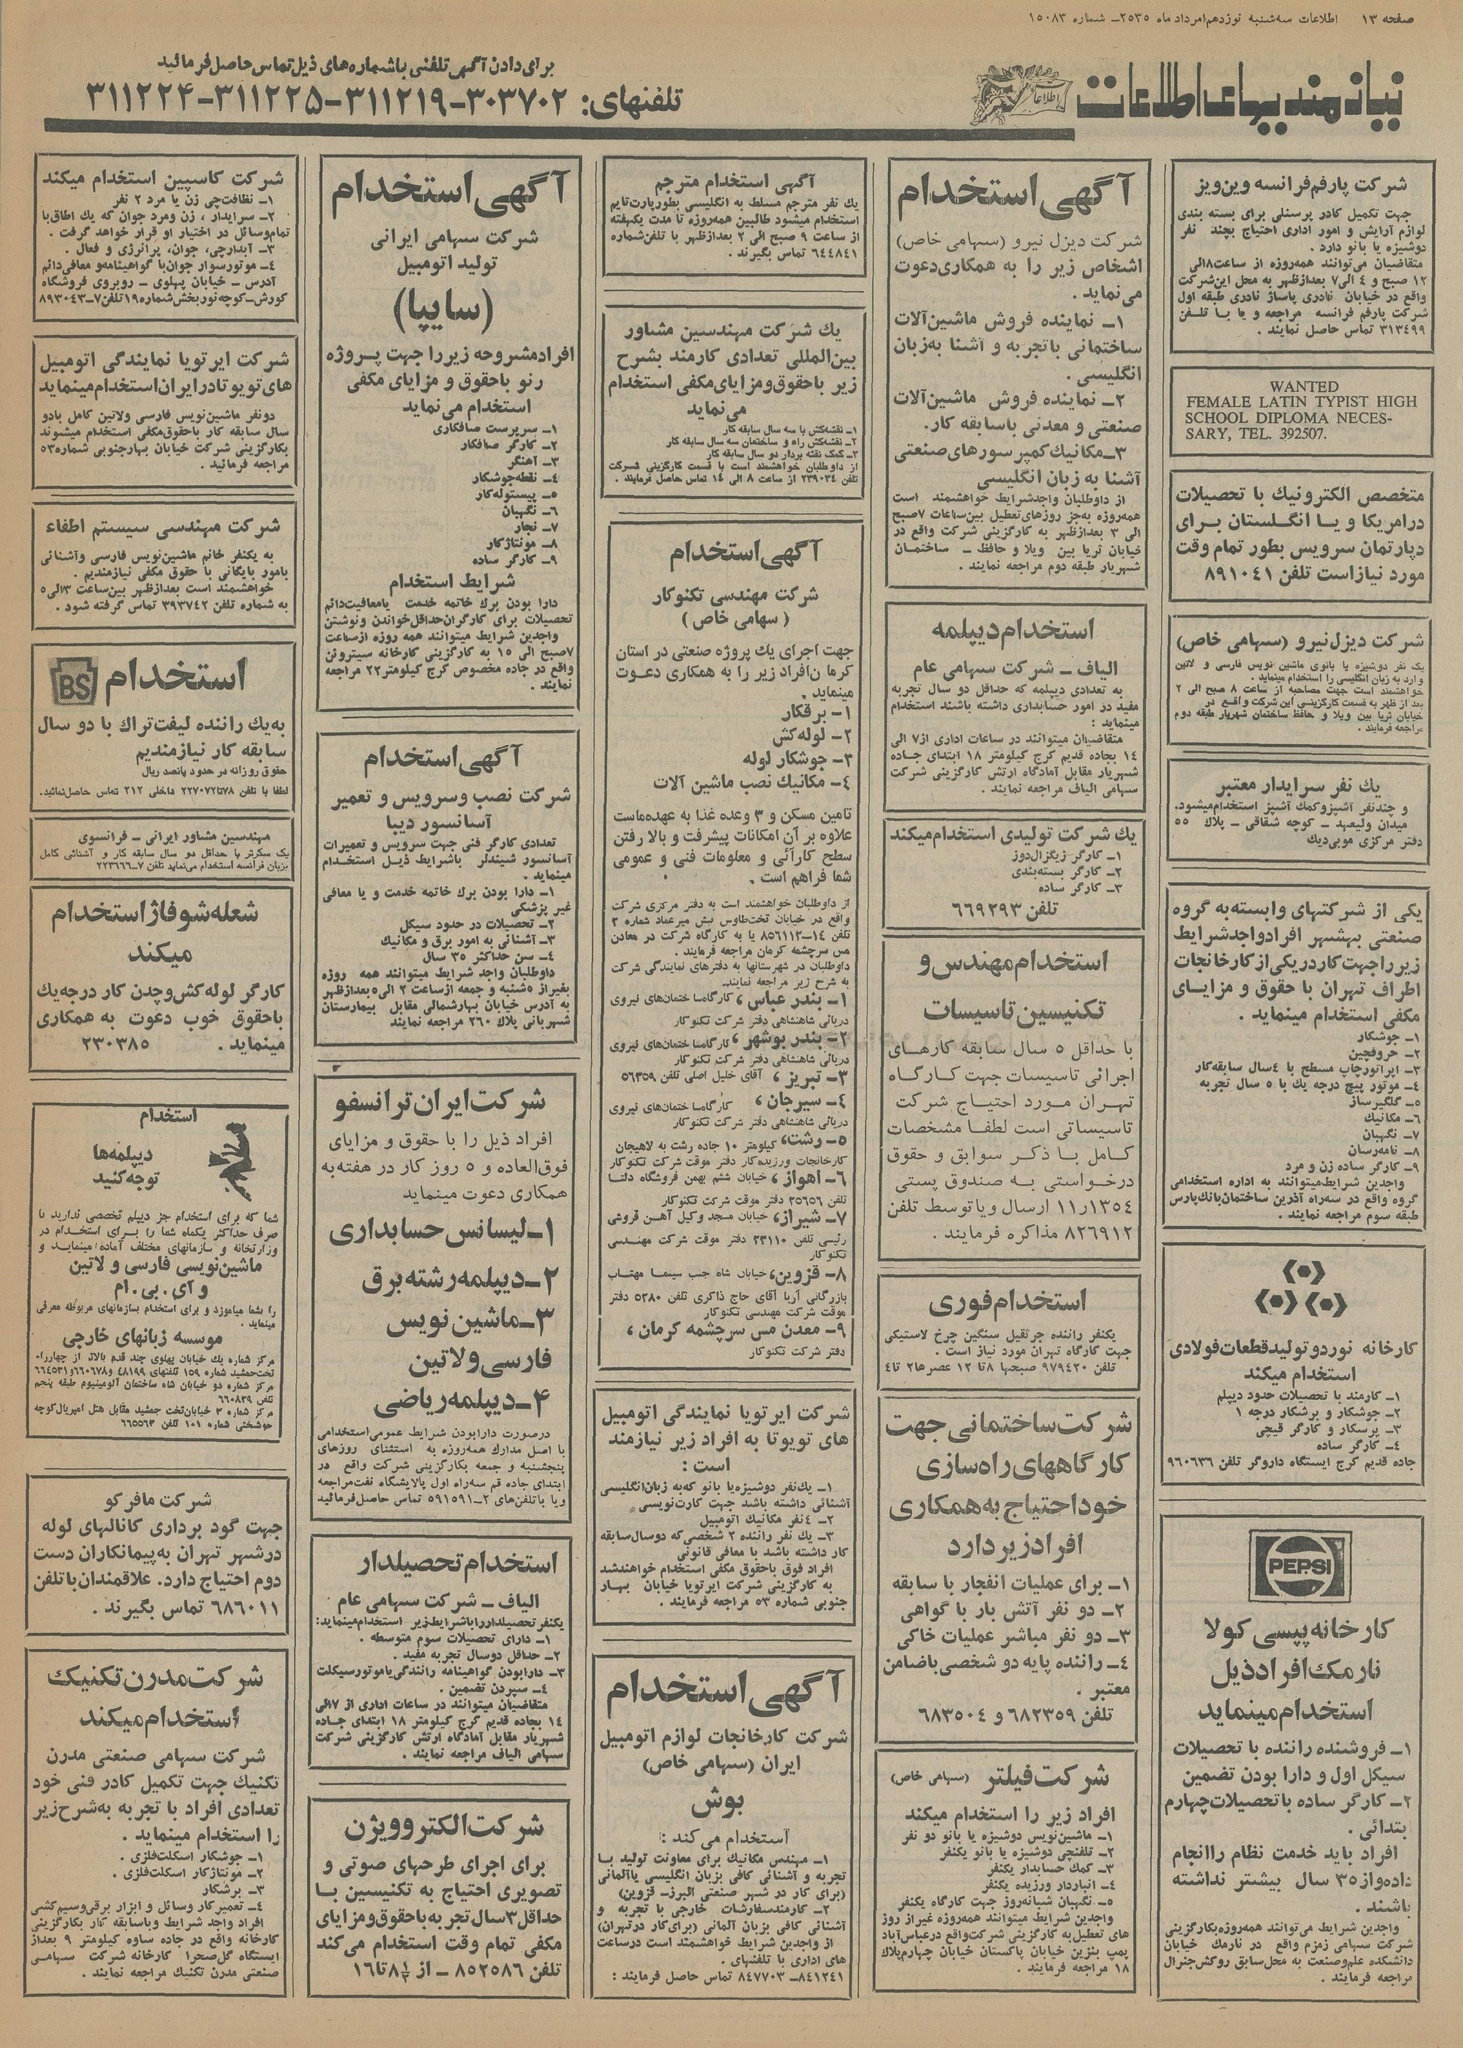 صفحه ۱۳ اطلاعات سه‌شنبه نوزدهم امرداد ماه ۲۵۳۵ـ شماره ۱۵۰۸۳
نیازمندیهای اطلاعات
برای دادن آگهی تلفنی با شماره‌های ذیل تماس حاصل فرمائید
تلفنهای: ۳۰۳۷۰۲-۳۱۱۲۱۹-۳۱۱۲۲۵-۳۱۱۲۲۴
شرکت پارفم فرانسه وین ویز
جهت تکمیل کادر پرسنلی برای بسته بندی
لوازم آرایش و امور اداری احتیاج بچند نفر
دوشیزه یا بانو دارد .
متقاضیان می‌توانند همه‌روزه از ساعت ۸ الی
۱۲ صبح و ۴ الی ۷ بعدازظهر به محل این شرکت
واقع در خیابان نادری پاساژ نادری طبقه اول
شرکت پارفم فرانسه مراجعه و یا با تلفن
۳۱۳۴۹۹ تماس حاصل نمایند .
WANTED
FEMALE LATIN TYPIST HIGH
SCHOOL DIPLOMA NECES-
SARY, TEL. 392507.
متخصص الکترونیك با تحصیلات
در امریکا و یا انگلستان برای
دپارتمان سرویس بطور تمام وقت
مورد نیاز است تلفن ۸۹۱۰۴۱
شرکت دیزل نیرو (سهامی خاص)
یک نفر دوشیزه یا بانوی ماشین نویس فارسی و لاتین
وارد به زبان انگلیسی را استخدام مینماید .
خواهشمند است جهت مصاحبه از ساعت ۸ صبح الی ۲
بعد از ظهر به قسمت کارگزینی این شرکت واقع در
خیابان ثریا بین ویلا و حافظ ساختمان شهریار طبقه دوم
مراجعه فرمایند .
یك نفر سرایدار معتبر
و چند نفر آشپز و کمك آشپز استخدام میشود.
میدان ولیعهد ـ کوچه شقاقی ـ پلاك ۵۵
دفتر مرکزی موبی‌دیك
یکی از شرکتهای وابسته به گروه
صنعتی بهشهر افراد واجد شرایط
زیر را جهت کار در یکی از کارخانجات
اطراف تهران با حقوق و مزایای
مکفی استخدام مینماید .
۱ـ جوشکار
۲ـ حروفچین
۳ـ اپراتورچاپ مسطح با ۴ سال سابقه کار
۴ـ موتور پیچ درجه یك با ۵ سال تجربه
۵ـ گلگیرساز
۶ـ مکانیك
۷ـ نگهبان
۸ـ نامه‌رسان
۹ـ کارگر ساده زن و مرد
واجدین شرایط میتوانند به اداره استخدامی
گروه واقع در سه‌راه آذرین ساختمان بانك پارس
طبقه سوم مراجعه نمایند .
کارخانه نورد و تولید قطعات فولادی
استخدام میکند
۱ـ کارمند با تحصیلات حدود دیپلم
۲ـ جوشکار و برشکار درجه ۱
۳ـ پرسکار و کارگر قیچی
۴ـ کارگر ساده
جاده قدیم کرج ایستگاه داروگر تلفن ۹۶۰۶۳۶
PEPSI
کارخانه پپسی کولا
نارمك افراد ذیل
استخدام مینماید
۱ـ فروشنده راننده با تحصیلات
سیکل اول و دارا بودن تضمین
۲ـ کارگر ساده با تحصیلات چهارم
ابتدائی .
افراد باید خدمت نظام را انجام
داده و از ۳۵ سال بیشتر نداشته
باشند .
واجدین شرایط می‌توانند همه‌روزه بکارگزینی
شرکت سهامی زمزم واقع در نارمك خیابان
دانشکده علم و صنعت به محل سابق روکش جنرال
مراجعه فرمایند .
آگهی استخدام
شرکت دیزل نیرو (سهامی خاص)
اشخاص زیر را به همکاری دعوت
می‌نماید .
۱ـ نماینده فروش ماشین‌آلات
ساختمانی با تجربه و آشنا به زبان
انگلیسی .
۲ـ نماینده فروش ماشین‌آلات
صنعتی و معدنی با سابقه کار.
۳ـ مکانیك کمپرسورهای صنعتی
آشنا به زبان انگلیسی
از داوطلبان واجد شرایط خواهشمند است
همه‌روزه به‌جز روزهای تعطیل بین ساعات ۷ صبح
الی ۳ بعدازظهر به کارگزینی شرکت واقع در
خیابان ثریا بین ویلا و حافظ ـ ساختمان
شهریار طبقه دوم مراجعه نمایند .
استخدام دیپلمه
الیاف ـ شرکت سهامی عام
به تعدادی دیپلمه که حداقل دو سال تجربه
مفید در امور حسابداری داشته باشند استخدام
مینماید :
متقاضیان میتوانند در ساعات اداری از ۷ الی
۱۴ بجاده قدیم کرج کیلومتر ۱۸ ابتدای جاده
شهریار مقابل آمادگاه ارتش کارگزینی شرکت
سهامی الیاف مراجعه نمایند .
یك شرکت تولیدی استخدام میکند
۱ـ کارگر زیگزال‌دوز
۲ـ کارگر بسته‌بندی
۳ـ کارگر ساده
تلفن ۶۶۹۲۹۳
استخدام مهندس و
تکنیسین تاسیسات
با حداقل ۵ سال سابقه کارهای
اجرائی تاسیسات جهت کارگاه
تهران مورد احتیاج شرکت
تاسیساتی است لطفا مشخصات
کامل با ذکر سوابق و حقوق
درخواستی به صندوق پستی
۱۱ر۱۳۵۴ ارسال ویا توسط تلفن
۸۲۶۹۱۲ مذاکره فرمایند .
استخدام فوری
یکنفر راننده جرثقیل سنگین چرخ لاستیکی
جهت کارگاه تهران مورد نیاز است .
تلفن ۹۷۹۴۲۰ صبحها ۸ تا ۱۲ عصرها ۲ تا ۴
شرکت ساختمانی جهت
کارگاههای راه‌سازی
خود احتیاج به همکاری
افراد زیر دارد
۱ـ برای عملیات انفجار با سابقه
۲ـ دو نفر آتش بار با گواهی
۳ـ دو نفر مباشر عملیات خاکی
۴ـ راننده پایه دو شخصی با ضامن
معتبر .
تلفن ۶۸۲۳۵۹ و ۶۸۳۵۰۴
شرکت فیلتر (سهامی خاص)
افراد زیر را استخدام میکند
۱ـ ماشین‌نویس دوشیزه یا بانو دو نفر
۲ـ تلفنچی دوشیزه یا بانو یکنفر
۳ـ کمك حسابدار یکنفر
۴ـ انباردار ورزیده یکنفر
۵ـ نگهبان شبانه‌روز جهت کارگاه یکنفر
واجدین شرایط میتوانند همه‌روزه غیر از روز
های تعطیل به کارگزینی شرکت واقع در عباس‌آباد
پمپ بنزین خیابان پاکستان خیابان چهارم پلاك
۱۸ مراجعه فرمایند .
آگهی استخدام مترجم
یك نفر مترجم مسلط به انگلیسی بطور پارت تایم
استخدام میشود طالبین همه‌روزه تا مدت یکهفته
از ساعت ۹ صبح الی ۲ بعدازظهر با تلفن شماره
۶۴۴۸۴۱ تماس بگیرند .
یك شرکت مهندسین مشاور
بین‌المللی تعدادی کارمند بشرح
زیر با حقوق و مزایای مکفی استخدام
می‌نماید
۱ـ نقشه‌کش با سه سال سابقه کار
۲ـ نقشه‌کش راه و ساختمان سه سال سابقه کار
۳ـ کمک نقشه بردار دو سال سابقه کار
از داوطلبان خواهشمند است با قسمت کارگزینی شرکت
تلفن ۲۳۹۰۳۴ از ساعت ۸ الی ۱۴ تماس حاصل فرمایند .
آگهی استخدام
شرکت مهندسی تکنوکار
( سهامی خاص )
جهت اجرای یك پروژه صنعتی در استان
کرمان افراد زیر را به همکاری دعوت
مینماید .
۱ـ برقکار
۲ـ لوله‌کش
۳ـ جوشکار لوله
۴ـ مکانیك نصب ماشین آلات
تامین مسکن و ۳ وعده غذا به عهده‌ماست
علاوه بر آن امکانات پیشرفت و بالا رفتن
سطح کارآئی و معلومات فنی و عمومی
شما فراهم است .
از داوطلبان خواهشمند است به دفتر مرکزی شرکت
واقع در خیابان تخت‌طاوس نبش میرعماد شماره ۲
تلفن ۱۴ـ۸۵۶۱۱۳ یا به کارگاه شرکت در معادن
مس سرچشمه کرمان مراجعه فرمایند .
داوطلبان در شهرستانها به دفترهای نمایندگی شرکت
به شرح زیر مراجعه نمایند.
۱ـ بندر عباس ، کارگاه ساختمان‌های نیروی
دریائی شاهنشاهی دفتر شرکت تکنوکار
۲ـ بندر بوشهر ، کارگاه ساختمان‌های نیروی
دریائی شاهنشاهی دفتر شرکت تکنوکار
۳ـ تبریز ، آقای خلیل اصلی تلفن ۵۶۳۵۹
۴ـ سیرجان ، کارگاه ساختمان‌های نیروی
دریائی شاهنشاهی دفتر شرکت تکنوکار
۵ـ رشت، کیلومتر ۱۰ جاده رشت به لاهیجان
کارخانجات ورزیده‌کار دفتر موقت شرکت تکنوکار
۶ـ اهواز ، خیابان ششم بهمن فروشگاه دلتا
تلفن ۲۵۶۵۶ دفتر موقت شرکت تکنوکار
۷ـ شیراز، خیابان مسجد وکیل آهن فروشی
رئیسی تلفن ۲۳۱۱۰ دفتر موقت شرکت مهندسی
تکنوکار
۸ـ قزوین، خیابان شاه جنب سینما مهتاب
بازرگانی آریا آقای حاج ذاکری تلفن ۵۲۸۰ دفتر
موقت شرکت مهندسی تکنوکار
۹ـ معدن مس سرچشمه کرمان ،
دفتر شرکت تکنوکار
شرکت ایرتویا نمایندگی اتومبیل
های تویوتا به افراد زیر نیازمند
است :
۱ـ یك‌نفر دوشیزه یا بانو که به زبان انگلیسی
آشنائی داشته باشد جهت کارت‌نویسی
۲ـ ۴ نفر مکانیك اتومبیل
۳ـ یك نفر راننده ۲ شخصی که دوسال سابقه
کار داشته باشد با معافی قانونی
افراد فوق با حقوق مکفی استخدام خواهند شد
به کارگزینی شرکت ایرتویا خیابان بهار
جنوبی شماره ۵۳ مراجعه فرمایند .
آگهی استخدام
شرکت کارخانجات لوازم اتومبیل
ایران (سهامی خاص)
بوش
استخدام می کند :
۱ـ مهندس مکانیك برای معاونت تولید با
تجربه و آشنائی کافی بزبان انگلیسی یا آلمانی
(برای کار در شهر صنعتی البرزـ قزوین)
۲ـ کارمند سفارشات خارجی با تجربه و
آشنائی کافی بزبان آلمانی (برای کار در تهران)
از واجدین شرایط خواهشمند است در ساعت
های اداری با تلفنهای:
۸۴۱۲۴۱ـ۸۴۷۷۰۳ تماس حاصل فرمایند :
آگهی استخدام
شرکت سهامی ایرانی
تولید اتومبیل
(سایپا)
افراد مشروحه زیر را جهت پروژه
رنو با حقوق و مزایای مکفی
استخدام می‌نماید
۱ـ سرپرست صافکاری
۲ـ کارگر صافکار
۳ـ آهنگر
۴ـ نقطه‌جوشکار
۵ـ پیستوله‌کار
۶ـ نگهبان
۷ـ نجار
۸ـ مونتاژکار
۹ـ کارگر ساده
شرایط استخدام
دارا بودن برك خاتمه خدمت یا معافیت دائم
تحصیلات برای کارگران حداقل خواندن و نوشتن
واجدین شرایط میتوانند همه روزه از ساعت
۷ صبح الی ۱۵ به کارگزینی کارخانه سیتروئن
واقع در جاده مخصوص کرج کیلومتر ۲۲ مراجعه
نمایند .
آگهی استخدام
شرکت نصب و سرویس و تعمیر
آسانسور دیبا
تعدادی کارگر فنی جهت سرویس و تعمیرات
آسانسور شیندلر باشرایط ذیل استخدام
مینماید .
۱ـ دارا بودن برك خاتمه خدمت و یا معافی
غیر پزشکی
۲ـ تحصیلات در حدود سیکل
۳ـ آشنائی به امور برق و مکانیك
۴ـ سن حداکثر ۳۵ سال
داوطلبان واجد شرایط میتوانند همه روزه
بغیر از ۵شنبه و جمعه از ساعت ۲ الی ۵ بعدازظهر
به آدرس خیابان بهارشمالی مقابل بیمارستان
شهربانی پلاك ۲۶۰ مراجعه نمایند
شرکت ایران ترانسفو
افراد ذیل را با حقوق و مزایای
فوق‌العاده و ۵ روز کار در هفته به
همکاری دعوت مینماید
۱ـ لیسانس حسابداری
۲ـ دیپلمه رشته برق
۳ـ ماشین نویس
فارسی و لاتین
۴ـ دیپلمه ریاضی
درصورت دارابودن شرایط عمومی استخدامی
با اصل مدارك همه‌روزه به استثنای روزهای
پنجشنبه و جمعه بکارگزینی شرکت واقع در
ابتدای جاده قم سه‌راه اول پالایشگاه نفت مراجعه
ویا با تلفن‌های ۲ـ۵۹۱۵۹۱ تماس حاصل فرمائید
استخدام تحصیلدار
الیاف ـ شرکت سهامی عام
یکنفر تحصیلدار را با شرایط زیر استخدام مینماید:
۱ـ دارای تحصیلات سوم متوسطه .
۲ـ حداقل دوسال تجربه مفید .
۳ـ دارا بودن گواهینامه رانندگی یا موتورسیکلت
۴ـ سپردن تضمین .
متقاضیان میتوانند در ساعات اداری از ۷ الی
۱۴ بجاده قدیم کرج کیلومتر ۱۸ ابتدای جاده
شهریار مقابل آمادگاه ارتش کارگزینی شرکت
سهامی الیاف مراجعه نمایند .
شرکت الکتروویژن
برای اجرای طرحهای صوتی و
تصویری احتیاج به تکنیسین با
حداقل ۳ سال تجربه با حقوق و مزایای
مکفی تمام وقت استخدام می‌کند
تلفن ۸۵۲۵۸۶ ـ از ۸½ تا ۱۶
شرکت کاسپین استخدام میکند
۱ـ نظافت‌چی زن یا مرد ۲ نفر
۲ـ سرایدار ، زن و مرد جوان که یك اطاق با
تمام وسائل در اختیار او قرار خواهد گرفت .
۳ـ آبدارچی، جوان، پرانرژی و فعال .
۴ـ موتورسوار جوان با گواهینامه و معافی دائم
آدرس ـ خیابان پهلوی ـ روبروی فروشگاه
کورش ـ کوچه نوربخش شماره ۱۹ تلفن ۷ـ۸۹۳۰۴۳
شرکت ایرتویا نمایندگی اتومبیل
های تویوتا در ایران استخدام مینماید
دو نفر ماشین نویس فارسی ولاتین کامل با دو
سال سابقه کار با حقوق مکفی استخدام میشوند
بکارگزینی شرکت خیابان بهارجنوبی شماره ۵۳
مراجعه فرمائید .
شرکت مهندسی سیستم اطفاء
به یکنفر خانم ماشین‌نویس فارسی و آشنائی
بامور بایگانی با حقوق مکفی نیازمندیم .
خواهشمند است بعدازظهر بین ساعت ۳ الی ۵
به شماره تلفن ۳۹۳۷۴۲ تماس گرفته شود .
استخدام
BS
به یك راننده لیفت‌تراك با دو سال
سابقه کار نیازمندیم
حقوق روزانه در حدود پانصد ریال
لطفا با تلفن ۷۸تا۲۲۷۰۷۲ داخلی ۲۱۲ تماس حاصل نمائید.
مهندسین مشاور ایرانی ـ فرانسوی
یک سکرتر با حداقل دو سال سابقه کار و آشنائی کامل
بزبان فرانسه استخدام می‌نماید تلفن ۷ـ۲۲۳۶۶۶
شعله شوفاژ استخدام
میکند
کارگر لوله‌کش و چدن کار درجه یك
با حقوق خوب دعوت به همکاری
مینماید . ۲۳۰۳۸۵
استخدام
دیپلمه‌ها
توجه کنید
شما که برای استخدام جز دیپلم تخصصی ندارید با
صرف حداکثر یکماه شما را برای استخدام در
وزارتخانه و سازمانهای مختلف آماده مینماید و
ماشین نویسی فارسی و لاتین
و آی . بی . ام
را بشما میاموزد و برای استخدام بسازمانهای مربوطه معرفی
مینماید .
موسسه زبانهای خارجی
مرکز شماره یك خیابان پهلوی چند قدم بالاتر از چهارراه
تخت‌جمشید شماره ۱۵۹ تلفنهای ۴۸۱۹۹ و ۶۶۰۶۷۸ و ۶۶۴۵۳۱
مرکز شماره دو خیابان شاه ساختمان آلومینیوم طبقه پنجم
تلفن ۶۶۰۸۲۹
مرکز شماره ۳ خیابان تخت جمشید مقابل هتل امپریال کوچه
خوشبختی شماره ۱۰۱ تلفن ۶۶۵۵۶۳
شرکت مافرکو
جهت گود برداری کانالهای لوله
در شهر تهران به پیمانکاران دست
دوم احتیاج دارد. علاقمندان با تلفن
۶۸۶۰۱۱ تماس بگیرند .
شرکت مدرن تکنیك
استخدام میکند
شرکت سهامی صنعتی مدرن
تکنیك جهت تکمیل کادر فنی خود
تعدادی افراد با تجربه به شرح زیر
را استخدام مینماید .
۱ـ جوشکار اسکلت فلزی .
۲ـ مونتاژکار اسکلت فلزی .
۳ـ برشکار
۴ـ تعمیرکار وسائل و ابزار برقی و سیم‌کشی
افراد واجد شرایط و باسابقه کار بکارگزینی
کارخانه واقع در جاده ساوه کیلومتر ۹ بعد از
ایستگاه گل‌صحرا کارخانه شرکت سهامی
صنعتی مدرن تکنیك مراجعه نمایند .